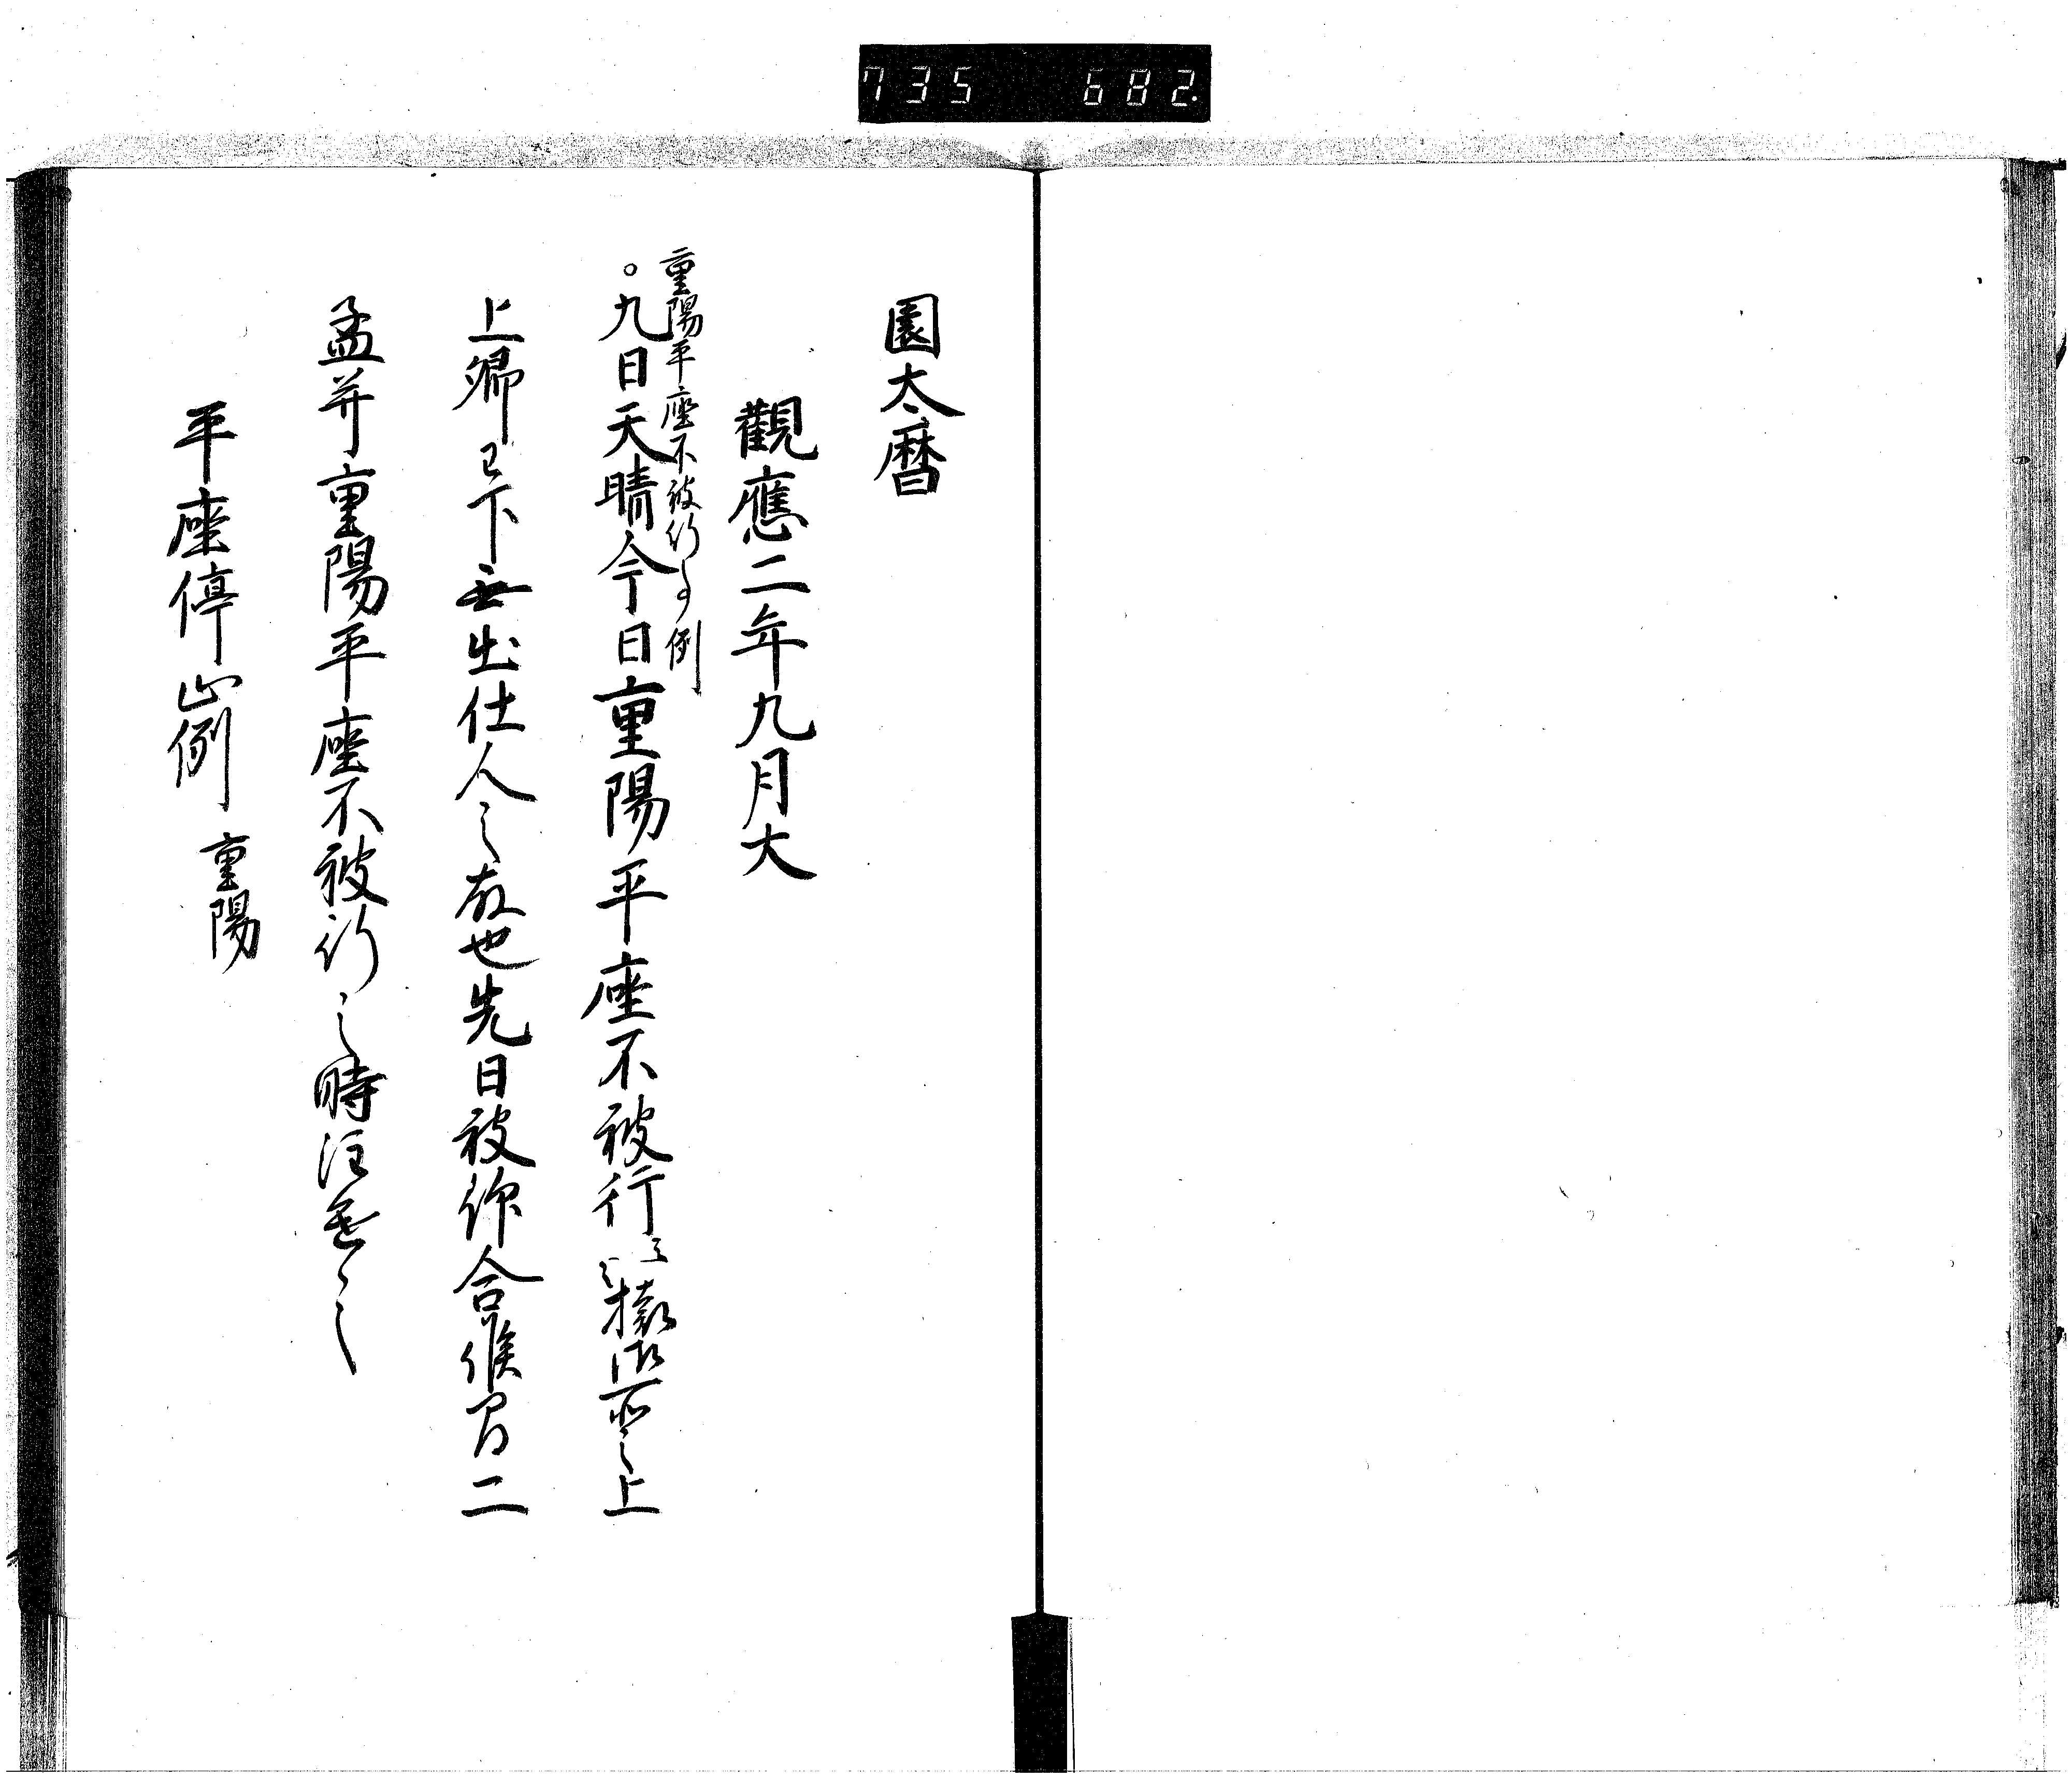 735 682
園太暦
觀應二年九月大
重陽平座不被行事例
。九日天晴今日重陽平座不被行之々穢氣之上
上卿已下無出仕人之故也先日被仰合候間二
孟并重陽平座不被行之時注進之
平座停止例 重陽